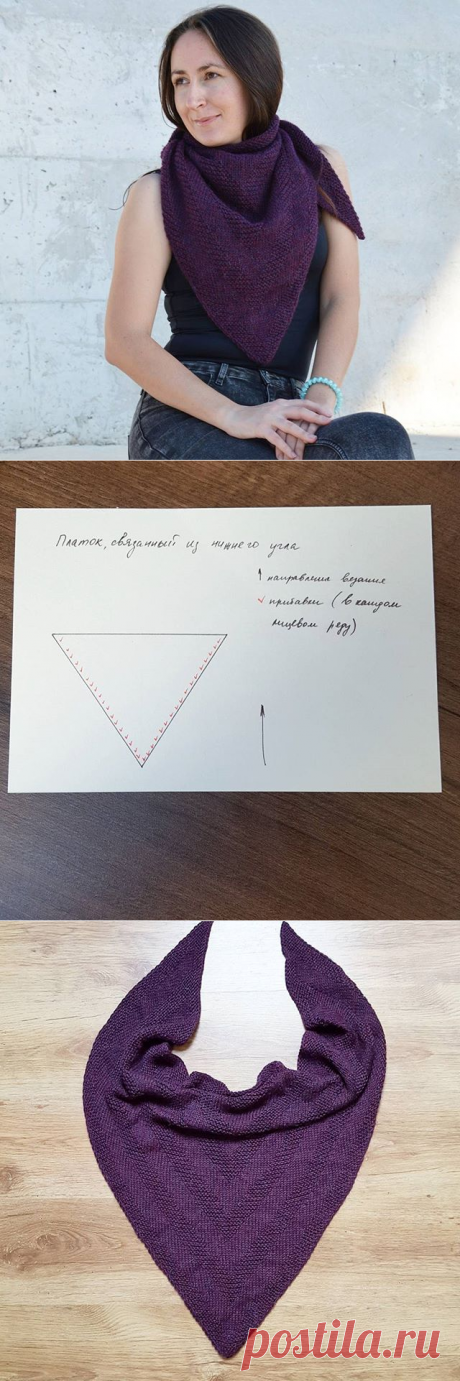 Платок, связанный из нижнего угла
направление вязания
прибавки (в каждом
лицевом ряду)
postila.ru